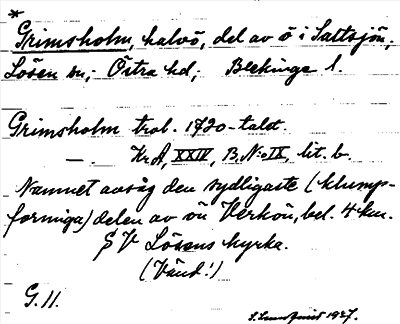 *
Grimsholm, halvö, del av ö i Saltsjön,
Lösen sn; Östra hd; Blekinge l.
Grimsholm trol. 1720-talet.
— KrA, XXIV, B, N:o IX, lit. b.
Namnet avsåg den sydligaste (klump-
formiga) delen av ön Verkön, bel. 4 km.
SV Lösens kyrka.
(Vänd!)
G. 11.
1927.